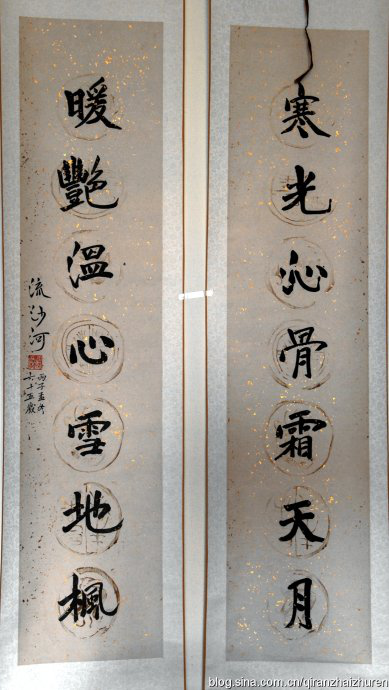 寒光沁骨霜天月
暖艷溫心雪地楓
流沙河
丙子孟冬
六十五歲
blog.sina.com.cn/qiranzhaizhuren